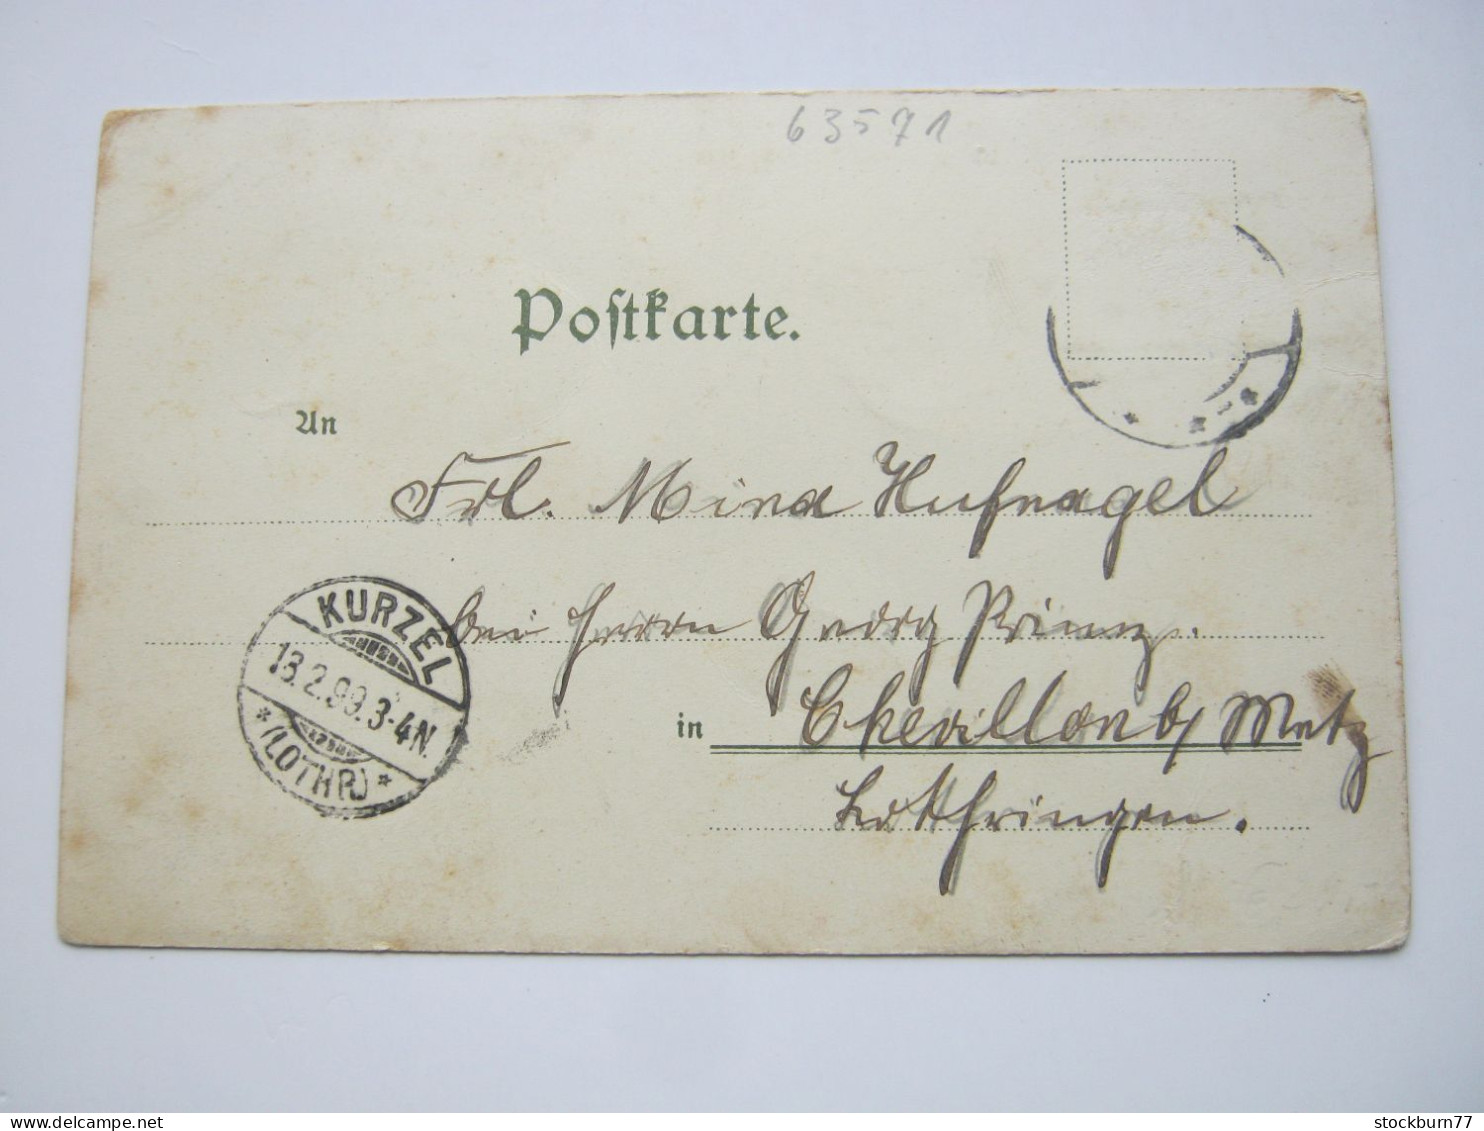 63571
Postkarte.
An
Frl. Mina Hufnagel
bei Herrn Georg Prinz.
in Ckevillon b/ Metz
Lothringen.
KURZEL
13.2.99.3-4N.
* (LOTHR) *
stockburn77